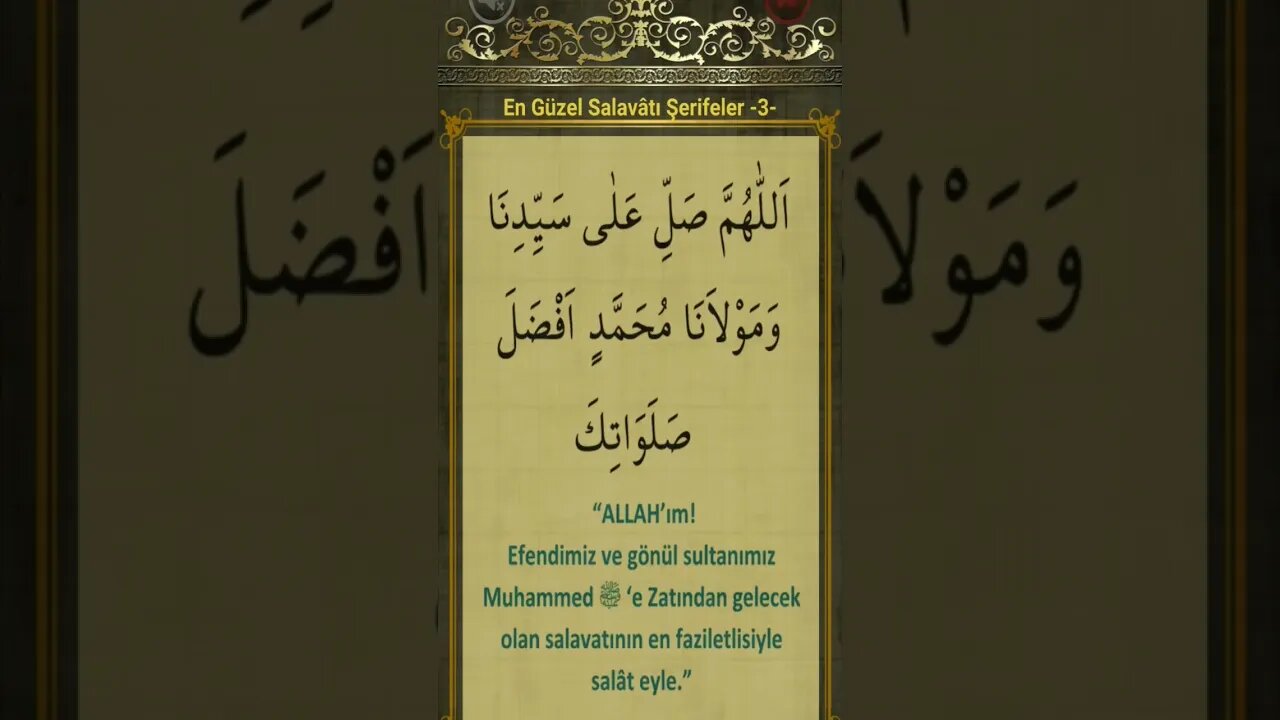 En Güzel Salavâtı Şerifeler -3-
اَللّٰهُمَّ صَلِّ عَلٰى سَيِّدِنَا
وَمَوْلاَنَا مُحَمَّدٍ اَفْضَلَ
صَلَوَاتِكَ
“ALLAH’ım!
Efendimiz ve gönül sultanımız
Muhammed ﷺ ‘e Zatından gelecek
olan salavatının en faziletlisiyle
salât eyle.”